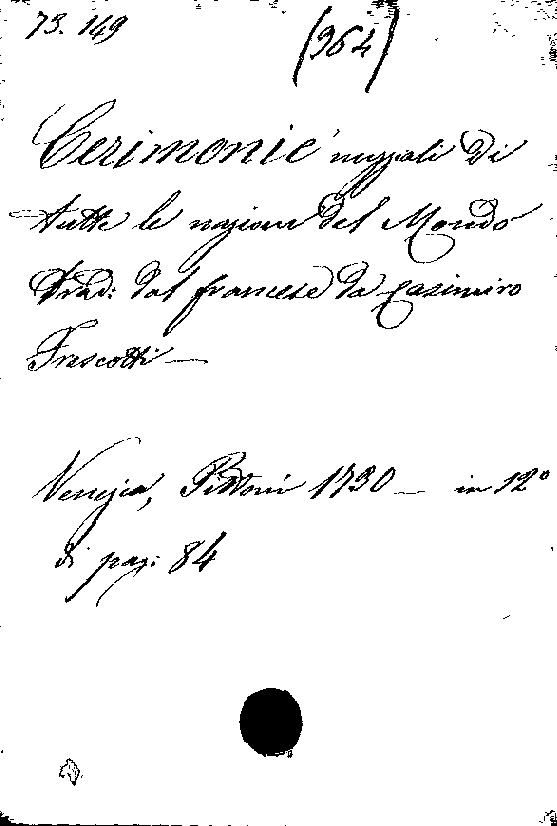 73. 149
(364)
Cerimonie nuzziali di
tutte le nazioni del Mondo
Trad: dal francese da Casimiro
Frescotti —
Venezia, Pittoni 1730 — in 12°
di pag: 84